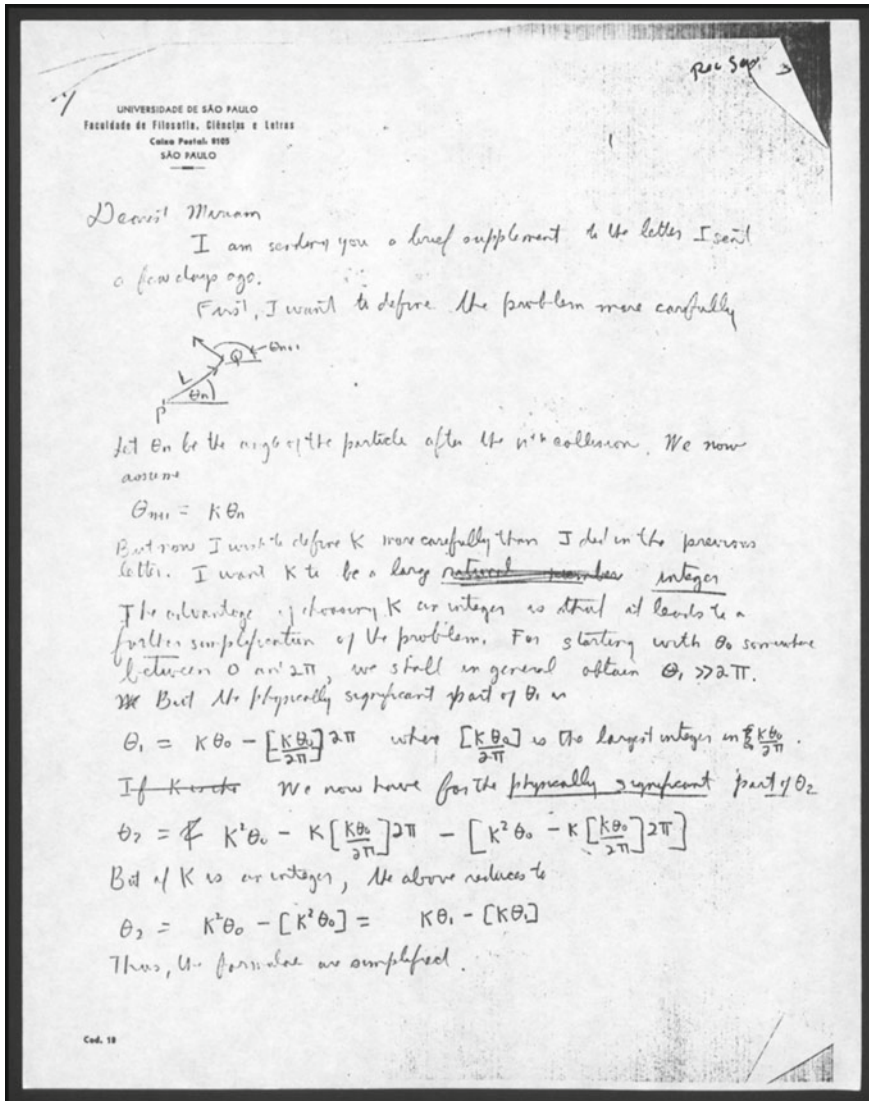 Rec Sep. 3
UNIVERSIDADE DE SÃO PAULO
Faculdade de Filosofia, Ciências e Letras
Caixa Postal: 8105
SÃO PAULO
Dearest Miriam
I am sending you a brief supplement to the letter I sent
a few days ago.
First, I want to define the problem more carefully
Q θn+1
L
θn
P
Let θn be the angle of the particle after the nth collision. We now
assume
θn+1 = K θn
But now I wish to define K more carefully than I did in the previous
letter. I want K to be a large natural number integer
The advantage of choosing K an integer is that it leads to a
further simplification of the problem. For starting with θ0 somewhere
between 0 and 2π, we shall in general obtain θ1 >> 2π.
But the physically significant part of θ1 is
θ1 = Kθ0 - [Kθ0/2π] 2π where [Kθ0/2π] is the largest integer in Kθ0/2π.
If K is the We now have for the physically significant part of θ2
θ2 = K²θ0 - K[Kθ0/2π]2π - [K²θ0 - K[Kθ0/2π]2π]
But if K is an integer, the above reduces to
θ2 = K²θ0 - [K²θ0] = Kθ1 - [Kθ1]
Thus, the formulae are simplified.
Cod. 18